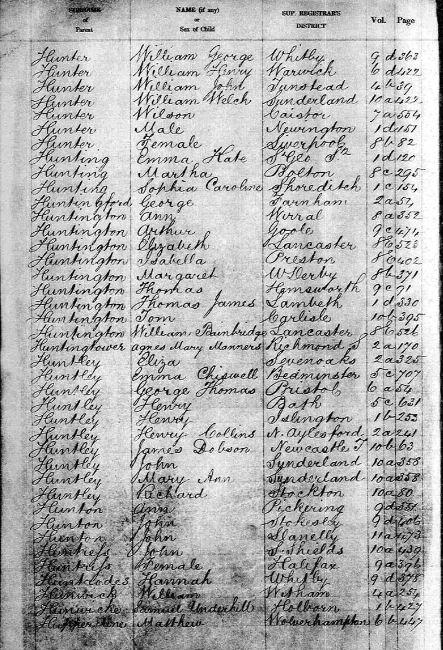 SURNAME of Parent NAME (if any) or Sex of Child SUP. REGISTRAR'S DISTRICT Vol. Page
Hunter William George Whitby 9 d 363
Hunter William Henry Warwick 6 d 422
Hunter William John Tunstead 4 b 39
Hunter William Welch Sunderland 10 a 422
Hunter Wilson Caistor 7 a 534
Hunter Male Newington 1 d 151
Hunter Female Liverpool 8 b 82
Hunting Emma Kate St Geo 1 d 120
Hunting Martha Bolton 8 c 295
Hunting Sophia Caroline Shoreditch 1 c 154
Huntingford George Farnham 2 a 54
Huntington Ann Wirral 8 a 352
Huntington Arthur Goole 9 c 474
Huntington Elizabeth Lancaster 8 e 528
Huntington Isabella Preston 8 e 402
Huntington Margaret W. Derby 8 b 371
Huntington Thomas Hemsworth 9 c 71
Huntington Thomas James Lambeth 1 d 330
Huntington Tom Carlisle 10 b 395
Huntington William Bainbridge Lancaster 8 e 526
Huntingtower Agnes Mary Manners Richmond S 2 a 170
Huntley Eliza Sevenoaks 2 a 325
Huntley Emma Chiswell Bedminster 5 c 707
Huntley George Thomas Bristol 6 a 54
Huntley Henry Bath 5 c 631
Huntley Henry Islington 1 b 253
Huntley Henry Collins N. Aylesford 2 a 241
Huntley James Dobson Newcastle T. 10 b 63
Huntley John Sunderland 10 a 358
Huntley Mary Ann Sunderland 10 a 358
Huntley Richard Stockton 10 a 80
Hunton Ann Pickering 9 d 351
Hunton John Stokesley 9 d 406
Hunton John Llanelly 11 a 473
Huntress John S. Shields 10 a 439
Huntriss Female Halifax 9 a 376
Huntrodes Hannah Whitby 9 d 375
Hunwick William Witham 4 a 254
Hunwicke Samuel Underhill Holborn 1 b 427
Matthew Wolverhampton 6 b 447